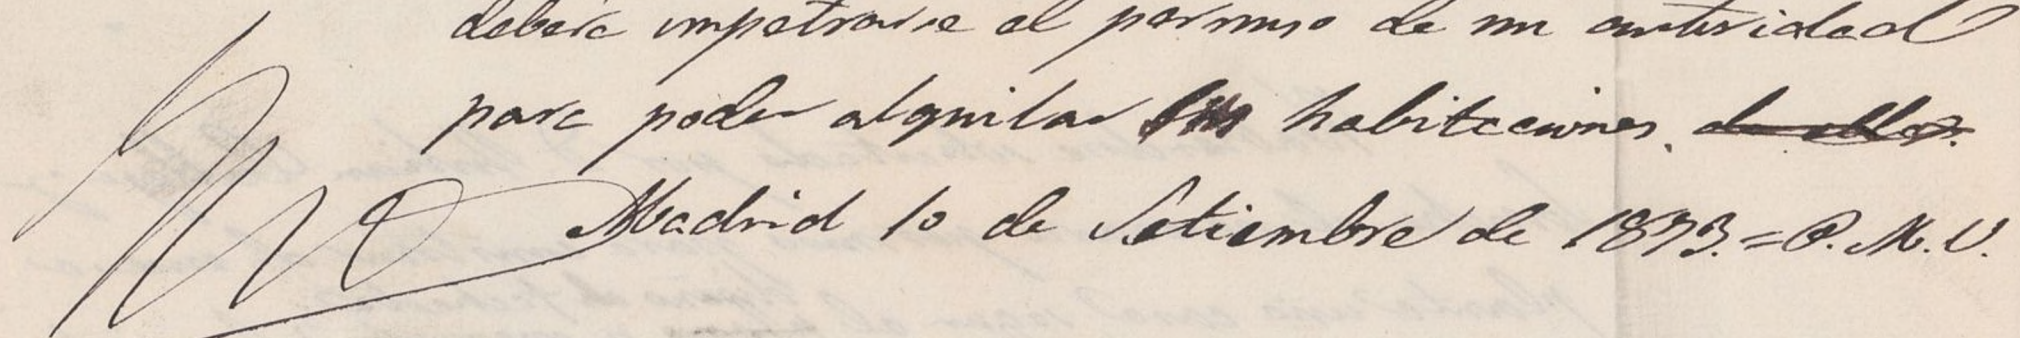 deberá impetrarse el permiso de mi autoridad
para poder alquilar sus habitaciones. de ellas.
Madrid 10 de Setiembre de 1873. = P. M. V.